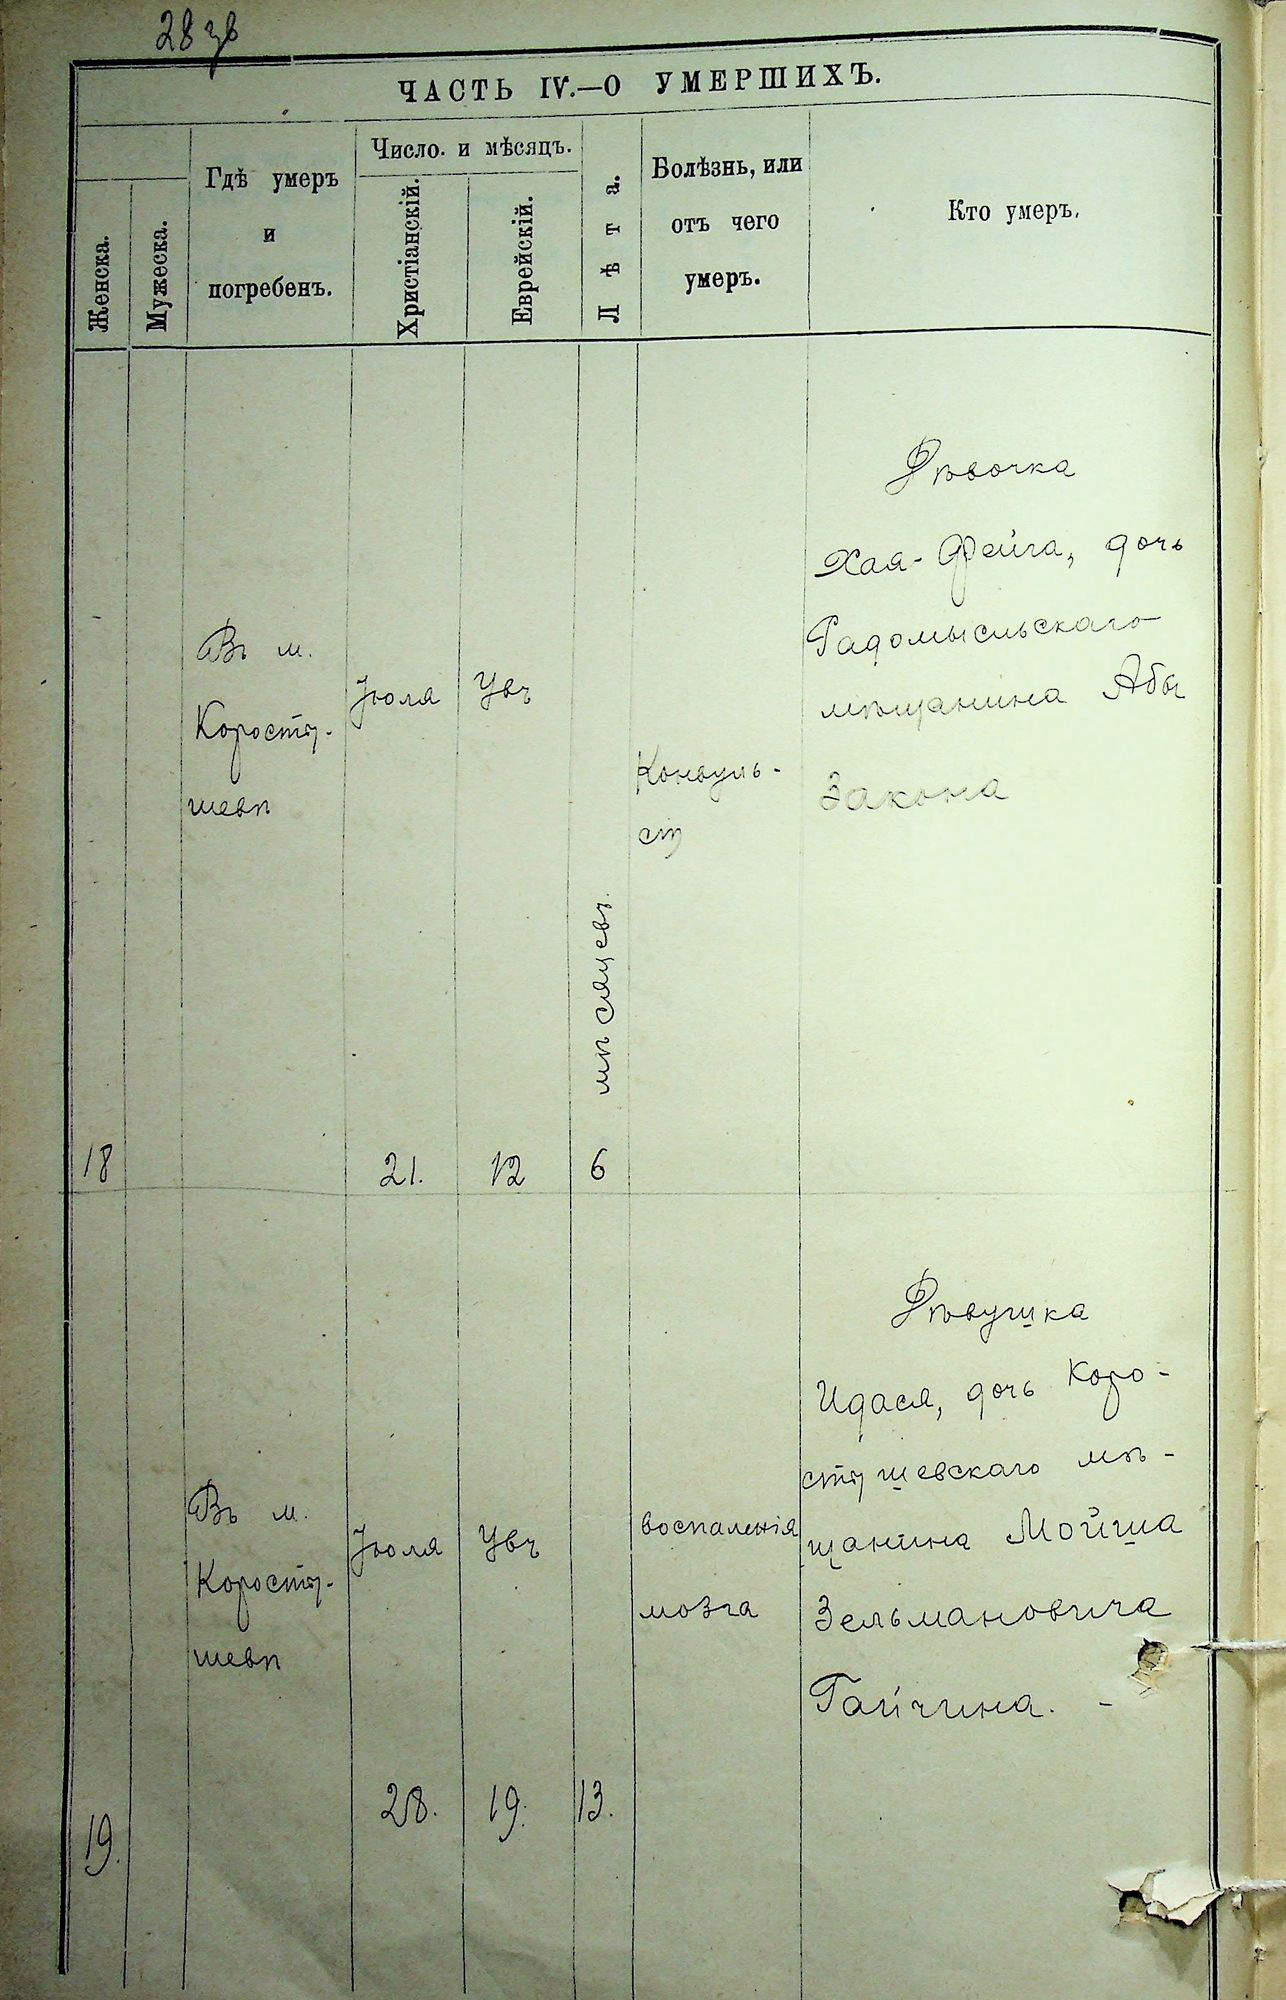 28 зв
ЧАСТЬ IV.—О УМЕРШИХЪ.
Женска.
Мужеска.
Гдѣ умеръ
и
погребенъ.
Число. и мѣсяцъ.
Христіанскій.
Еврейскій.
Лѣта.
Болѣзнь, или
отъ чего
умеръ.
Кто умеръ.
18
Въ м.
Коросты-
шевѣ
Іюля
21.
Увъ
12
6
мѣсяцевъ.
Конвуль-
сій
Дѣвочка
Хая-Фейга, дочь
Радомысльскаго
мѣщанина Абы
Закона
19.
Въ м.
Коросты-
шевѣ
Іюля
28.
Увъ
19.
13.
воспаленія
мозга
Дѣвушка
Идася, дочь Коро-
стышевскаго мѣ-
щанина Мойша
Зельмановича
Гайчина. -